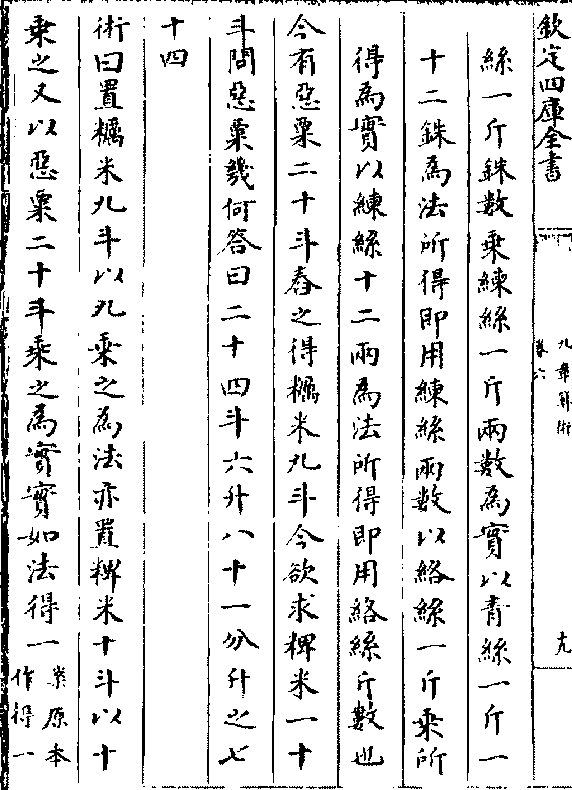 欽定四庫全書
九章算術
卷六
十九
絲一斤銖數乗練絲一斤兩數為實以青絲一斤一
十二銖為法所得即用練絲兩數以絡絲一斤乗所
得為實以練絲十二兩為法所得即用絡絲斤數也
今有惡粟二十斗舂之得糲米九斗今欲求粺米一十
斗問惡粟幾何答曰二十四斗六升八十一分升之七
十四
術曰置糲米九斗以九乗之為法亦置粺米十斗以十
乗之又以惡粟二十斗乗之為實實如法得一
案原本
作得一